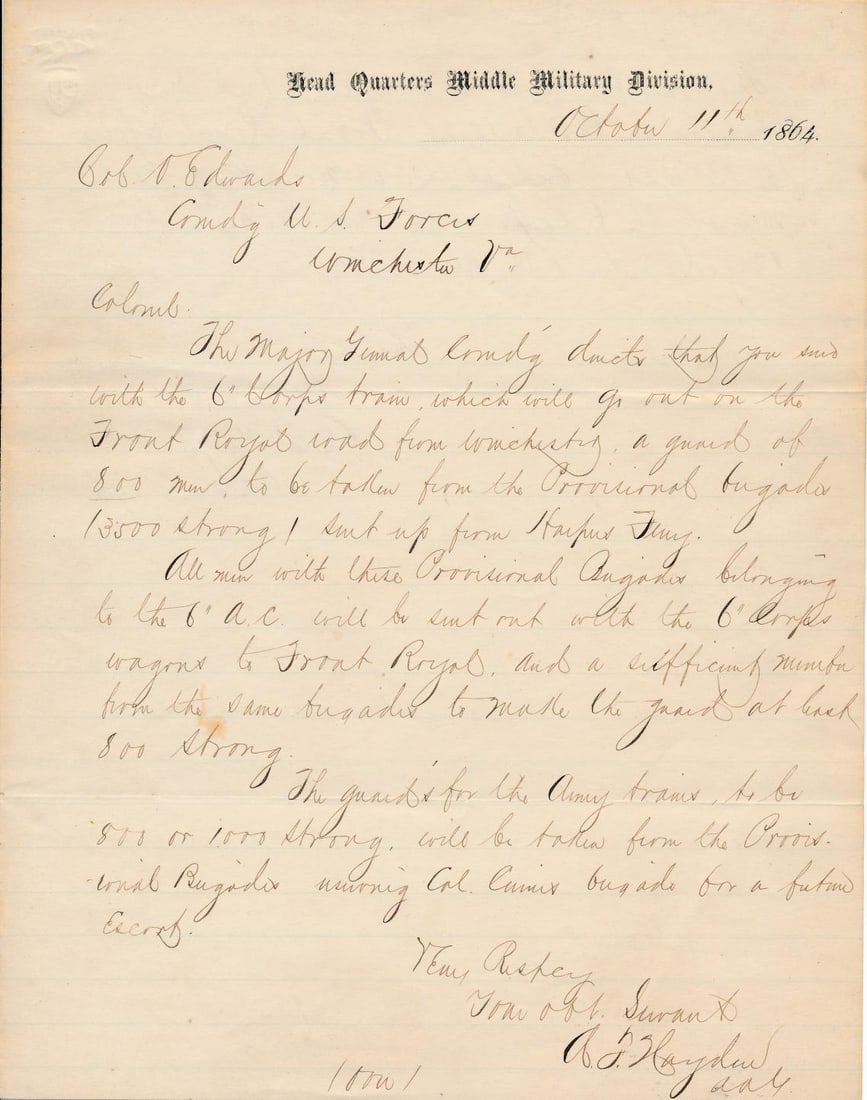 Head Quarters Middle Military Division,
October 11th 1864.
Col. O. Edwards
Comd'g U. S. Forces
Winchester Va
Colonel.
The Major General Comd'g directs that you send
with the 6" Corps train, which will go out on the
Front Royal road from Winchester, a guard of
800 men, to be taken from the Provisional brigades
(3500 strong) sent up from Harpers Ferry.
All men with these Provisional Brigades belonging
to the 6" A. C. will be sent out with the 6" Corps
wagons to Front Royal, and a sufficient number
from the same brigades to make the guard at least
800 strong.
The guards for the Army trains, to be
800 or 1000 strong, will be taken from the Provis-
ional Brigades reserving Col. brigade for a future
Escort.
Very Respcy
Your obt. Servant
(over)